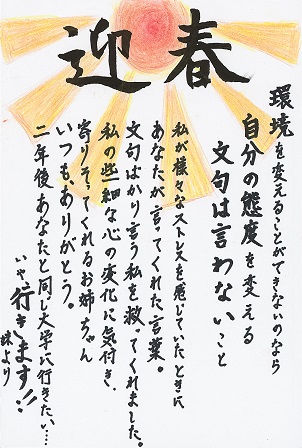 迎春
環境を変えることができないのなら
自分の態度を変える
文句は言わないこと
私が様々なストレスを感じていたときに
あなたが言ってくれた言葉。
文句ばかり言う私を救ってくれました。
私の些細な心の変化に気付き、
寄りそってくれるお姉ちゃん
いつもありがとう。
二年後あなたと同じ大学に行きたい…
いや行きます!!
妹より